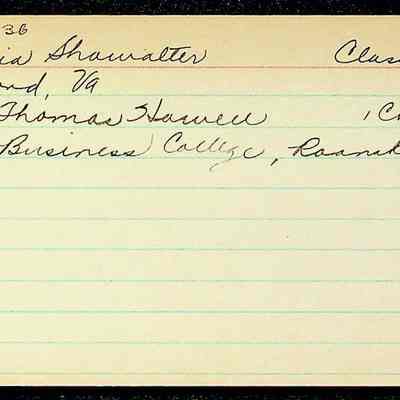 36
ia Showalter Clas
ord, Va
Thomas Howell , C
Business College, Roanok